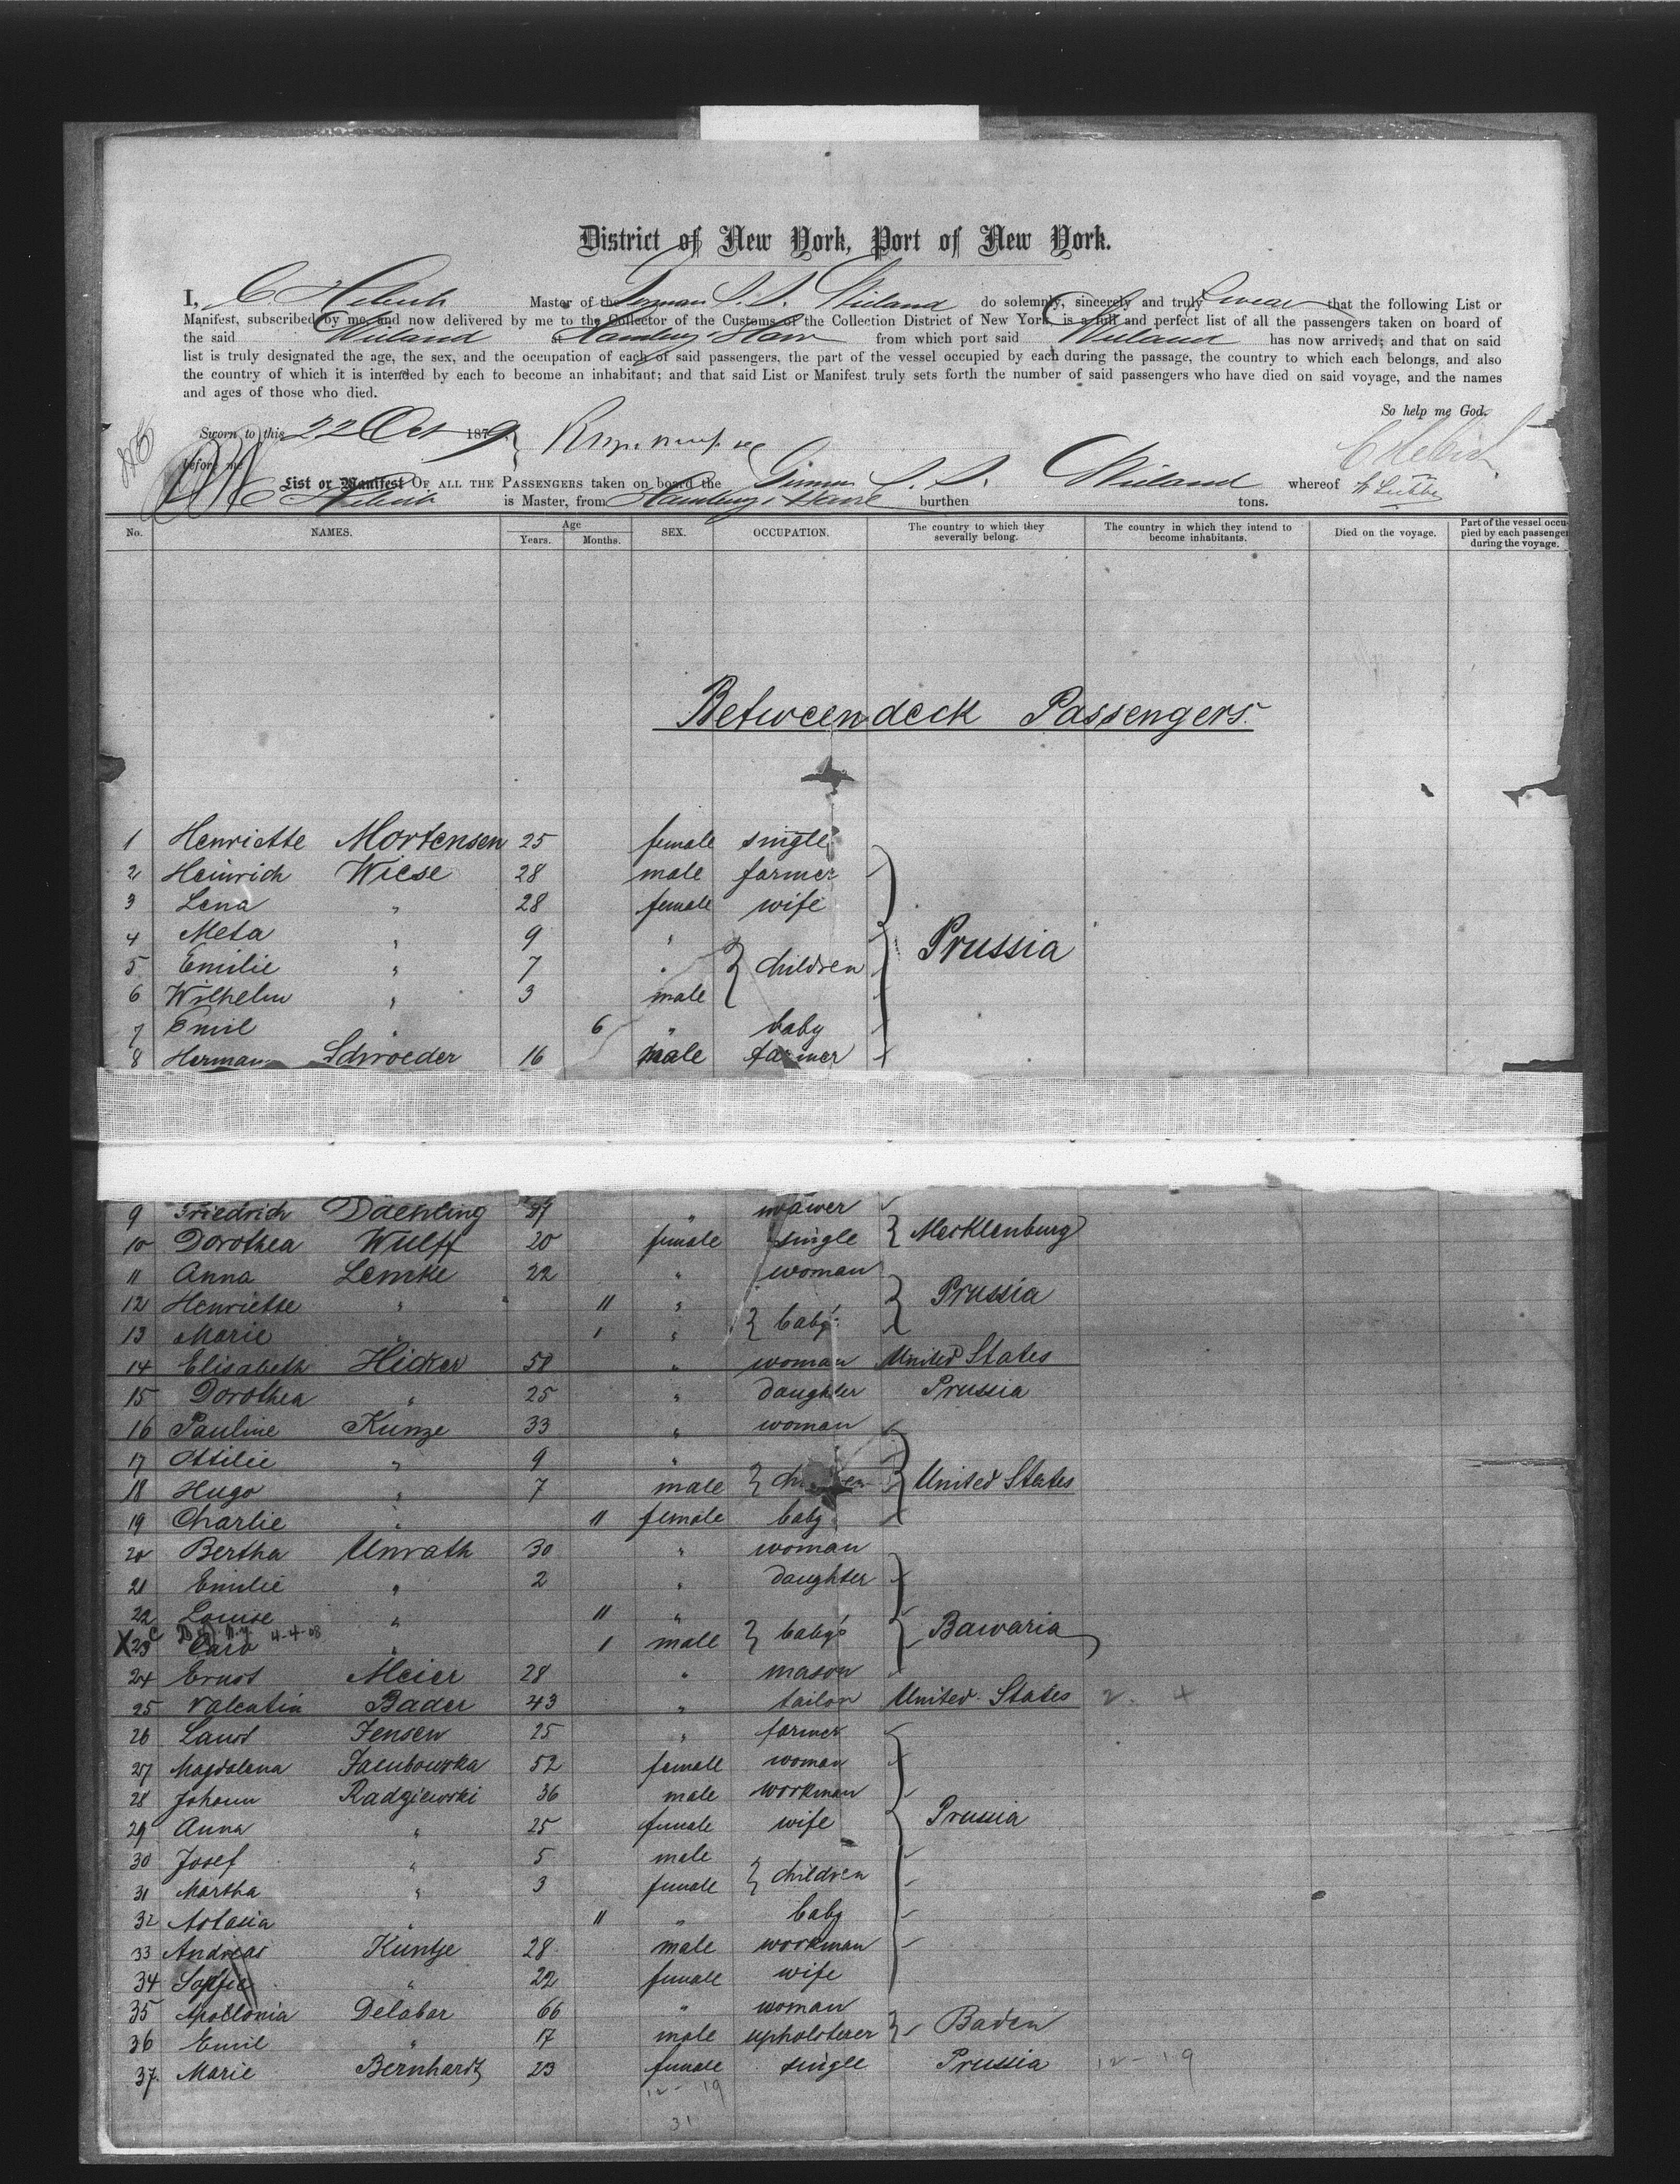 District of New York, Port of New York.
I, C Hebich Master of the German S. S. Wieland do solemnly, sincerely and truly swear that the following List or
Manifest, subscribed by me and now delivered by me to the Collector of the Customs of the Collection District of New York, is a full and perfect list of all the passengers taken on board of
the said Wieland at Hamburg & Havre from which port said Wieland has now arrived; and that on said
list is truly designated the age, the sex, and the occupation of each of said passengers, the part of the vessel occupied by each during the passage, the country to which each belongs, and also
the country of which it is intended by each to become an inhabitant; and that said List or Manifest truly sets forth the number of said passengers who have died on said voyage, and the names
and ages of those who died.
So help me God.
Sworn to this 22 Oct 1879
before me
C Hebich
List or Manifest OF ALL THE PASSENGERS taken on board the German S. S. Wieland whereof
C Hebich is Master, from Hamburg & Havre burthen tons.
No. NAMES. Age Years. Months. SEX. OCCUPATION. The country to which they severally belong. The country in which they intend to become inhabitants. Died on the voyage. Part of the vessel occupied by each passenger during the voyage.
Betweendeck Passengers.
1 Henriette Mortensen 25 female single
2 Heinrich Wiese 28 male farmer
3 Lena " 28 female wife
4 Meta " 9 " Prussia
5 Emilie " 7 " children
6 Wilhelm " 3 male
7 Emil " 6 " baby
8 Herman Schroeder 16 male farmer
9 Friedrich Daehling 29 "
10 Dorothea Wulff 20 female single Mecklenburg
11 Anna Lemke 22 " woman
12 Henriette " 11 " Prussia
13 Marie " 1 " baby's
14 Elisabeth Hicker 58 " woman United States
15 Dorothea " 25 " daughter Prussia
16 Pauline Kunze 33 " woman
17 Ottilie " 9 "
18 Hugo " 7 male children United States
19 Charlie " 11 female baby
20 Bertha Unrath 30 " woman
21 Emilie " 2 " daughter
22 Louise " 11 "
4-4-08
X 23 Caro " 1 male baby's Bawaria
24 Ernst Meier 28 " mason
25 Valentin Bader 43 " tailor United States 2. 4
26 Laust Jensen 25 " farmer
27 Magdalena Jacubowska 52 female woman
28 Johann Radziewski 36 male workman
29 Anna " 25 female wife Prussia
30 Josef " 5 male
31 Martha " 3 female children
32 Astasia " 11 " baby
33 Andreas Kuntze 28 male workman
34 Sophie " 22 female wife
35 Apollonia Delabar 66 " woman
36 Emil " 17 male upholsterer Baden
37. Marie Bernhardt 23 female single Prussia 12 - 19
12 - 19
31